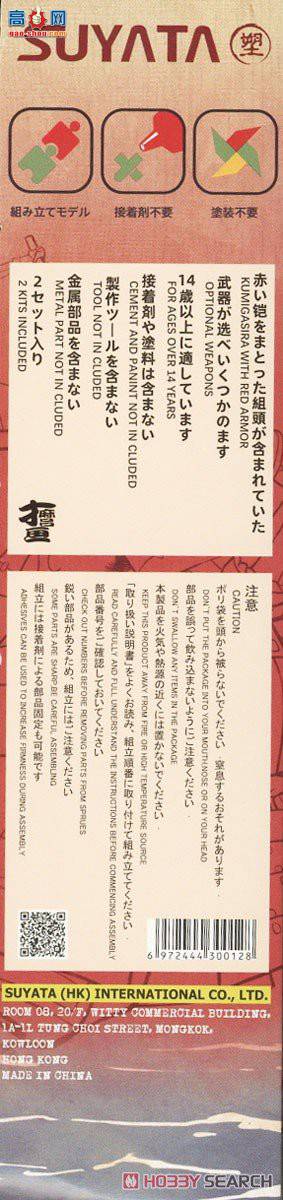 高手网
gao-shou.com
SUYATA 塑
組み立てモデル
接着剤不要
塗装不要
赤い铠をまとった組頭が含まれていた
KUMIGASIRA WITH RED ARMOR
武器が选べいくつかのます
OPTIONAL WEAPONS
14歳以上に適しています
FOR AGES OVER 14 YEARS
接着剤や塗料は含まない
CEMENT AND PANINT NOT IN CLUDED
製作ツールを含まない
TOOL NOT IN CLUDED
金属部品を含まない
METAL PART NOT IN CLUDED
2セット入り
2 KITS INCLUDED
注意
CAUTION
ポリ袋を頭から被らないでください 窒息するおそれがあります.
DON'T PUT THE PACKAGE INTO YOUR MOUTH,NOSE OR ON YOUR HEAD
部品を誤って飲み込まないようにご注意ください.
DON'T SWALLOW ANY ITEMS IN THE PACKAGE
本製品を火気や熱源の近くには置かないでください.
KEEP THIS PRODUCT AWAY FROM FIRE OR HIGH TEMPERATURE SOURCE
「取り扱い説明書」をよくお読み、組立順番に取り付けて組み立ててください.
READ CAREFULLY AND FULL UNDERSTAND THE INSTRUCTIONS BEFORE COMMENCING ASSEMBLY
部品番号をご確認しておいてください
CHECK OUT NUMBERS BEFORE REMOVING PARTS FROM SPRUES
鋭い部品があるため、組立にはご注意ください
SOME PARTS ARE SHARP,BE CAREFUL ASSEMBLING
組立には接着剤による部品固定も可能です
ADHESIVES CAN BE USED TO INCREASE FIRMNESS DURING ASSEMBLY
6 972444 300128
SUYATA (HK) INTERNATIONAL CO., LTD.
ROOM 08, 20/F, WITTY COMMERCIAL BUILDING,
1A-1L TUNG CHOI STREET, MONGKOK,
KOWLOON
HONG KONG
MADE IN CHINA
HOBBY SEARCH